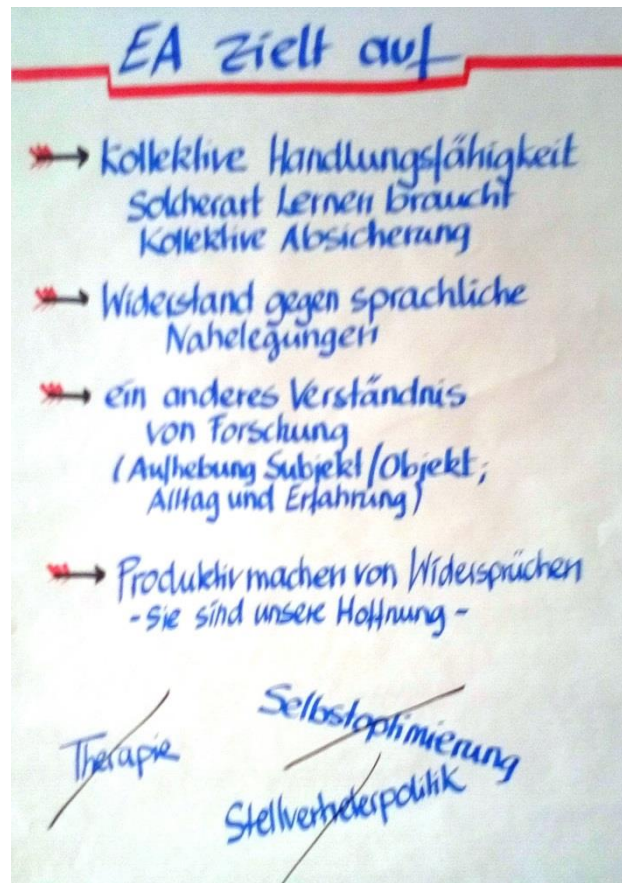 EA zielt auf
Kollektive Handlungsfähigkeit
Solcherart Lernen braucht
Kollektive Absicherung
Widerstand gegen sprachliche
Nahelegungen
ein anderes Verständnis
von Forschung
(Aufhebung Subjekt/Objekt;
Alltag und Erfahrung)
Produktivmachen von Widersprüchen
- Sie sind unsere Hoffnung -
Selbstoptimierung
Therapie
Stellvertreterpolitik